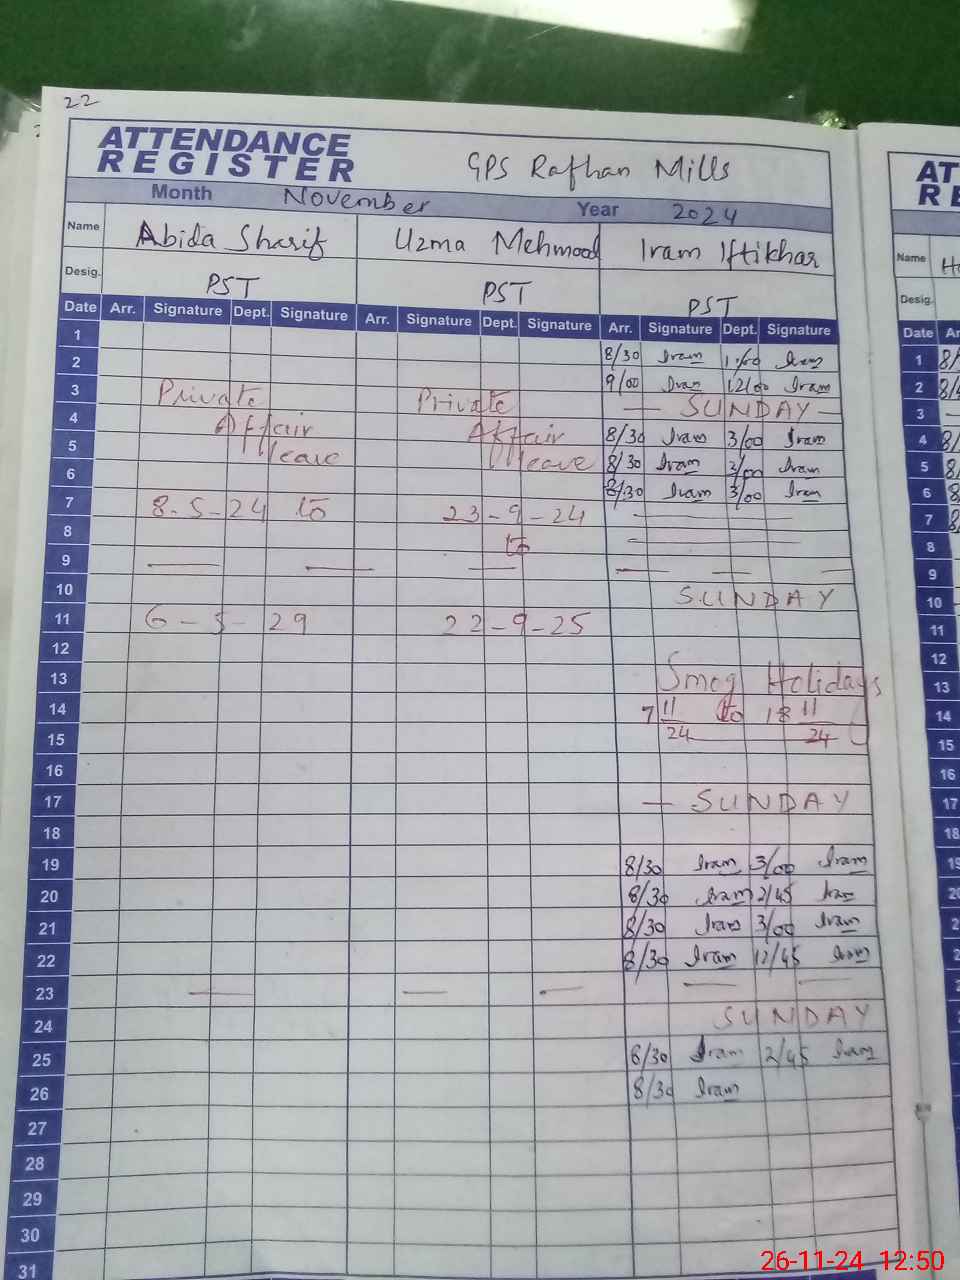 22
ATTENDANCE
REGISTER
GPS Rafhan Mills
Month November Year 2024
Name Abida Sharif Uzma Mehmood Iram Iftikhar
Desig. PST PST PST
Date Arr. Signature Dept. Signature Arr. Signature Dept. Signature Arr. Signature Dept. Signature
1 8/30 Iram 1:00 Iram
2 9/00 Iram 12/00 Iram
3 Private Private — SUNDAY —
4 Affair Affair 8/30 Iram 3/00 Iram
5 leave leave 8/30 Iram 2/00 Iram
6 8/30 Iram 3/00 Iram
7 8-5-24 to 23-9-24
8 to
9
10 SUNDAY
11 6-5-29 22-9-25
12
13 Smog Holidays
14 7 11/24 to 18 11/24
15
16
17 — SUNDAY
18
19 8/30 Iram 3/00 Iram
20 8/30 Iram 2/45 Iram
21 8/30 Iram 3/00 Iram
22 8/30 Iram 12/45 Iram
23
24 SUNDAY
25 8/30 Iram 2/45 Iram
26 8/30 Iram
27
28
29
30
31
AT
RE
Name
Desig.
Date Ar
1
2
3
4
5
6
7
8
9
10
11
12
13
14
15
16
17
18
26-11-24 12:50